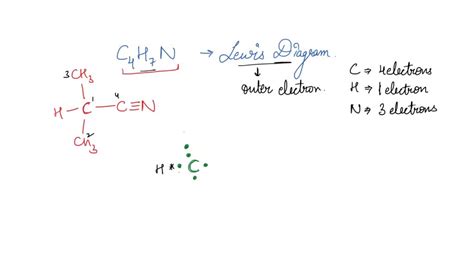 C₄H₇N → Lewis Diagram.
outer electron.
C ⇒ 4 electrons
H ⇒ 1 electron
N ⇒ 3 electrons
3CH₃
H—C¹—⁴C≡N
CH₃²
H × C